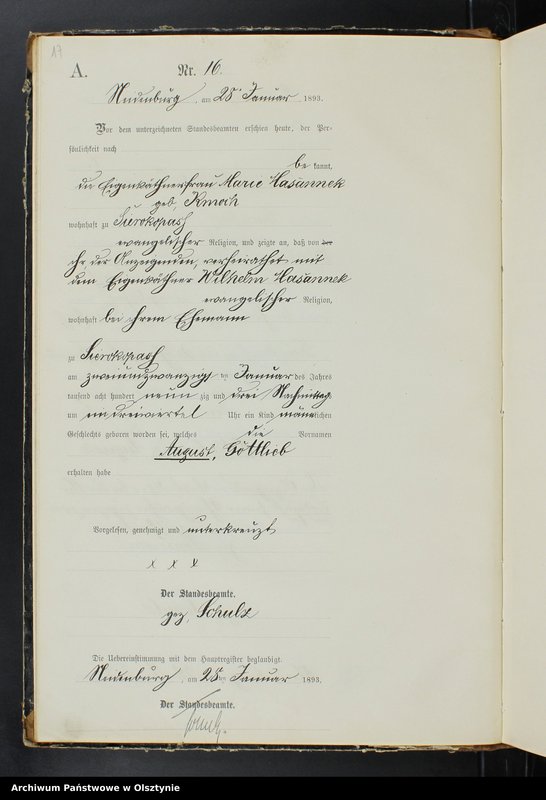 17
A.
Nr. 16.
Neidenburg, am 25 Januar 1893.
Vor dem unterzeichneten Standesbeamten erschien heute, der Per-
sönlichkeit nach
be kannt,
die Eigenkäthnerfrau Marie Hasannek
geb. Kmoch
wohnhaft zu Sierokopaß
evangelischer Religion, und zeigte an, daß von der
ihr, der Anzeigenden, verheirathet mit
dem Eigenkäthner Wilhelm Hasannek
evangelischer Religion,
wohnhaft bei ihrem Ehemann
zu Sierokopaß
am zweiundzwanzigsten Januar des Jahres
tausend acht hundert neun zig und drei Nachmittags
um dreiviertel Uhr ein Kind männlichen
Geschlechts geboren worden sei, welches die Vornamen
August, Gottlieb
erhalten habe
Vorgelesen, genehmigt und unterkreuzt
x x x
Der Standesbeamte.
gez. Schulz
Die Uebereinstimmung mit dem Hauptregister beglaubigt.
Neidenburg, am 25ten Januar 1893.
Der Standesbeamte.
Archiwum Państwowe w Olsztynie